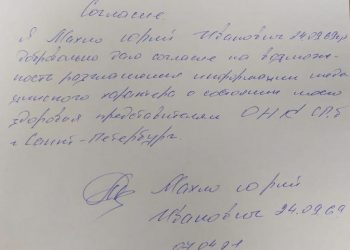 Согласие
Я Махло Юрий Иванович 24.09.69
добровольно даю согласие на возмож-
ность разглашения информации меди
цинского характера о состоянии моего
здоровья представителям ОНК СПб
г Санкт-Петербург.
Махло Юрий
Иванович 24.09.69